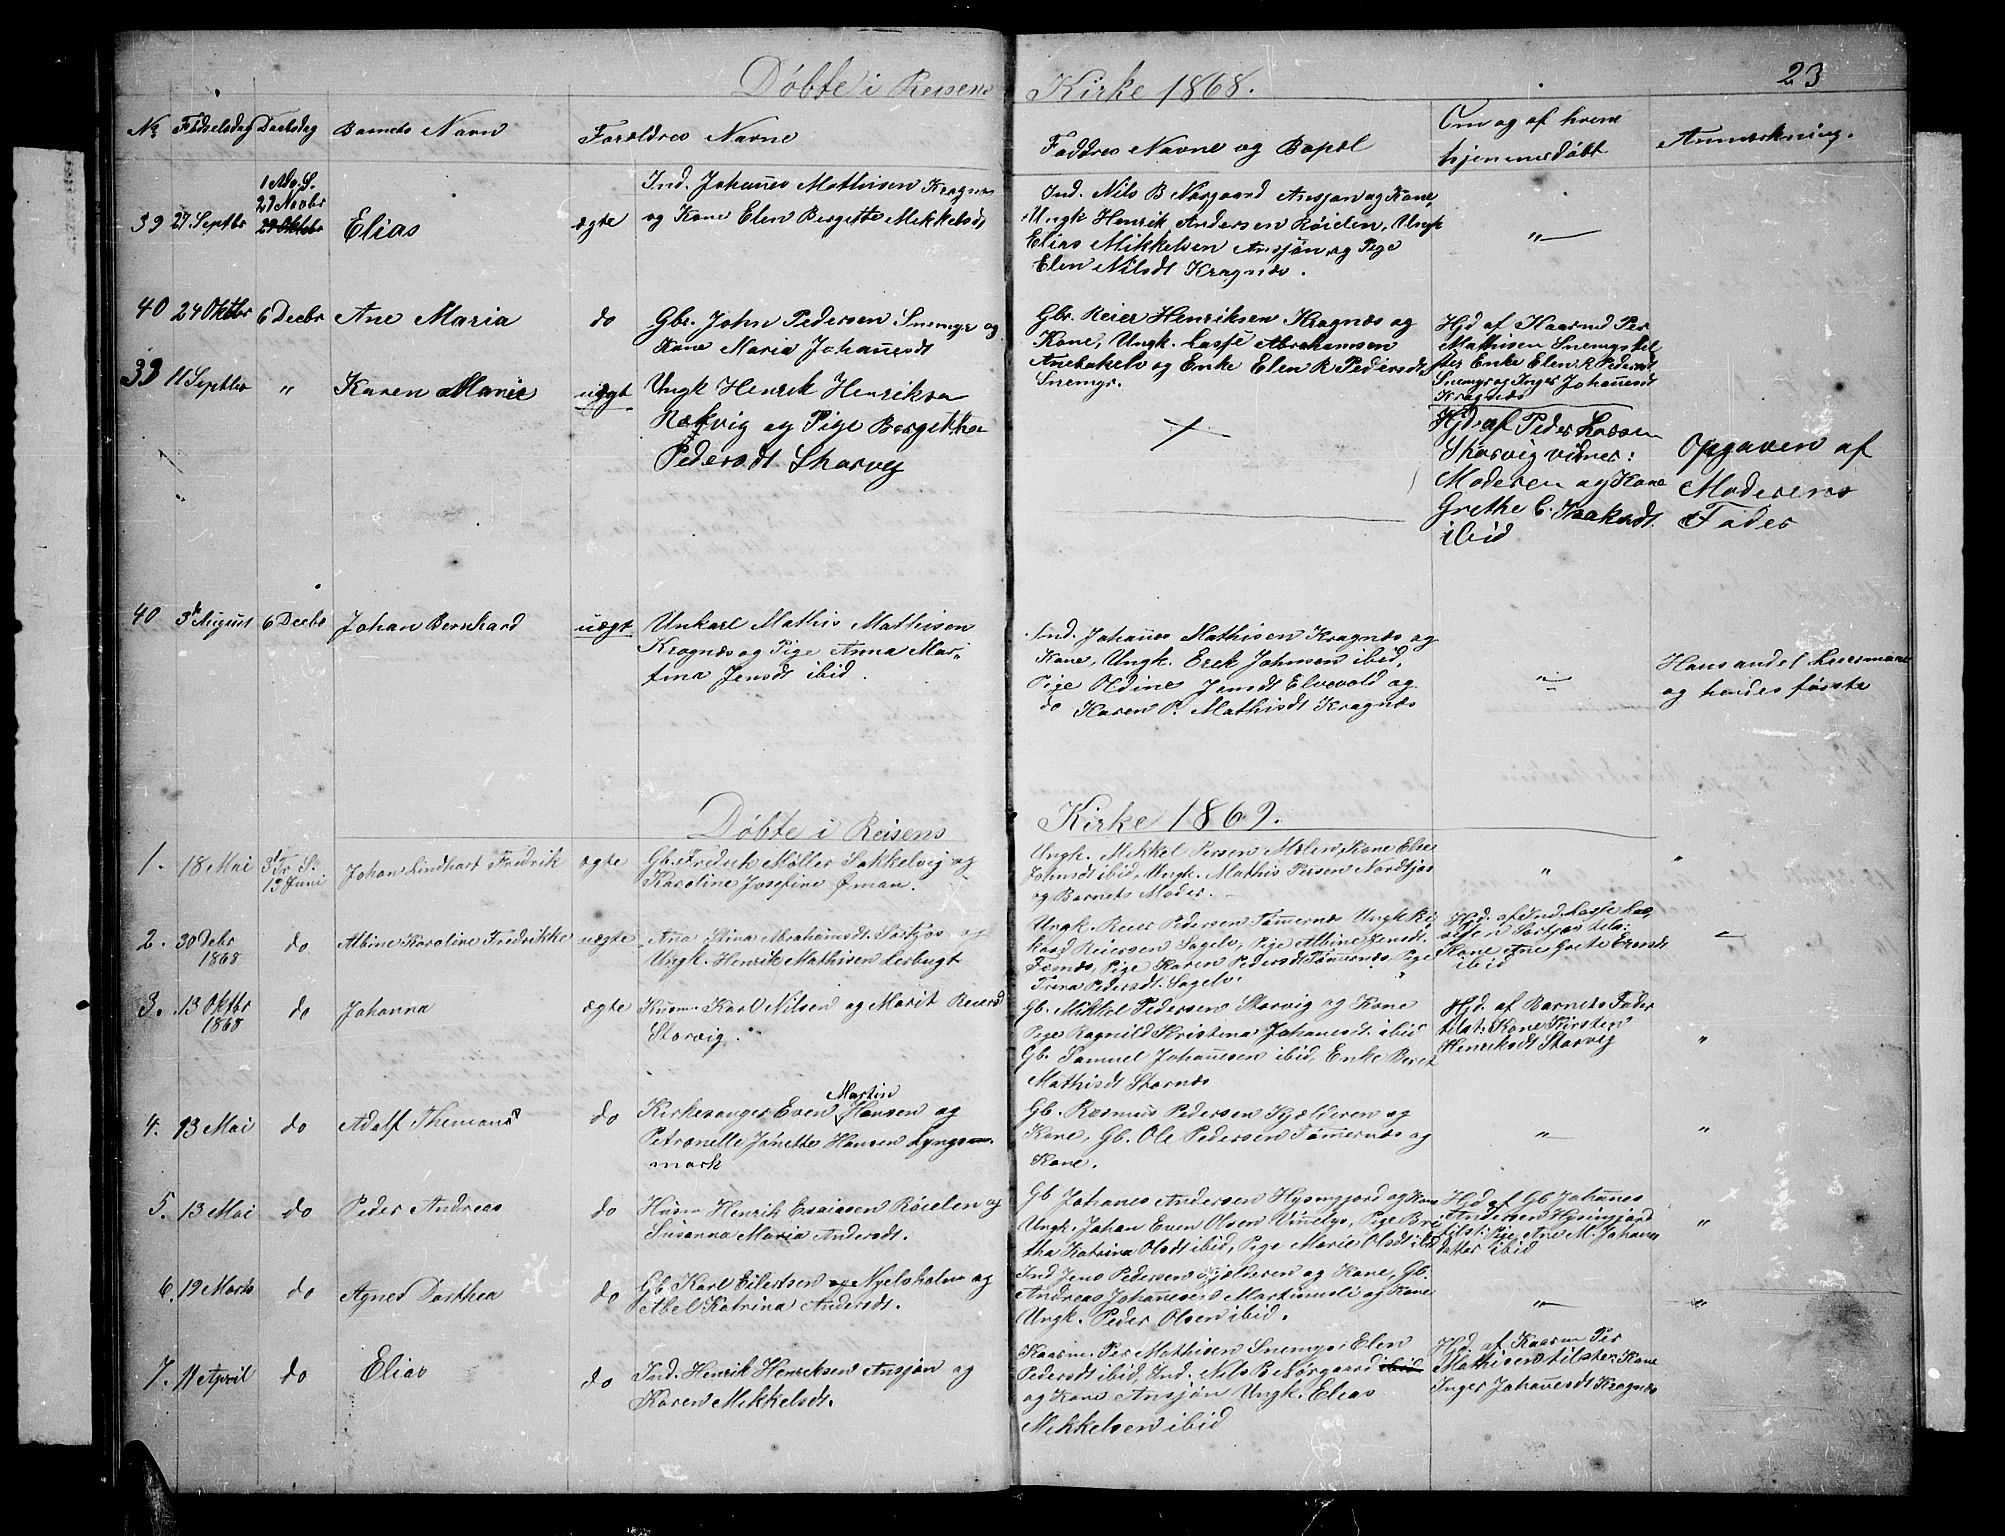 Døbte i Reisens Kirke 1868. 23
No Fødselsdag Daabsdag Barnets Navn Forældres Navne Faddres Navne og Bopæl Om og af hvem hjemmedøbt Anmærkning.
39 27 Septbr
1 Adv. S.
29 Novbr
29 Oktbr
Elias ægte
Ind. Johanes Mathisen Kragnæs
og Kone Elen Bergette Mikkelsdt
Ind. Nils B Nørgaard Ansjøn og Kone,
Ungk Henrik Andersen Røielen, Ungk
Elias Mikkelsen Ansjøn og Pige
Elen Nilsdt Kragnæs.
"
40 24 Oktbr 6 Decbr Ane Maria do
Gbr. John Pedersen Snemyr og
Kone Maria Johañesdt
Gbr. Reier Henriksen Kragnæs og
Kone, Ungk. Lasse Abrahamsen
og Enke Elen R Pedersdt
Snemyr.
Hjd af Kaarmd Per
Mathisen Snemyr til
ster Enke Elen R Pedersdt
Snemyr og Inger Johañesdt
Kragnæs
33 11 Septbr " Karen Marie uægt
Ungk Henrik Henriksen
Rækvig og Pige Bergetha
Pedersdt Storvig
Hjd. af Peder Lassen
Storvig vidner:
Moderen og Kone
Grethe C. Isaksdt
ibid
Opgaven af
Moderens
Fader
40 3de August 6 Decbr Johan Bernhard uægt
Unkarl Mathis Mathisen
Kragnæs og Pige Anna Mar-
tina Jensdt ibid.
Ind. Johañes Mathisen Kragnæs og
Kone, Ungk. Erek Johnsen ibid,
Pige Oldine Jensdt Elvevold og
do Karen P. Mathisdt Kragnæs
"
Hans andet Leiermaal
og hendes første
Døbte i Reisens Kirke 1869.
1. 18 Mai
3 Tr. S.
13 Juni
Johan Lindhart Fredrik ægte
Gb. Fredrik Møller Sokkelvig og
Karoline Josefine Øman.
Ungk. Mikkel Persen Molen, Kone Else
Johnsdt ibid, Ungk. Mathis Persen Nordkjos
og Barnets Moder.
" "
2. 30 Debr
1868
do Albine Karoline Fredrikke uægte
Aña Stina Abrahamsdt. Sørkjos og
Ungk. Henrik Mathisen Lerbugt
Ungk. Reier Pedersen Tømernæs Ungk Ri
kard Reiersen Sagelv, Pige Albine Jensdt.
Pige Karen Pedersdt Tømernæs, Pige
Trina Pedersdt. Sagelv.
Hjd. af Ind. Lasse Las,
Sørkjos tils.
Kone Ane Grete
ibid
3. 13 Oktbr
1868
do Johanna ægte
Husm. Karl Nilsen og Marit Reiersd
Storvig.
Gb. Mikkel Pedersen Storvig og Kone
Pige Ragnild Kristina Johanesdt. ibid
Gb. Samuel Johañesen ibid, Enke Beret
Mathisdt Stornæs
Hjd. af Barnets Fader
tilst. Kone Kirsten
Henriksdt Storvig
"
4. 13 Mai do Adolf Themans do
Martin
Kirkesanger Even Hansen og
Petronelle Janette Hansen Lyngs
mark
Gb. Rasmus Pedersen Kjælderen og
Kone, Gb. Ole Pedersen Tømernæs og
Kone.
" "
5. 13 Mai do Peder Andreas do
Husm Henrik Esaiasen Røielen og
Susanna Maria Andersdt.
Gb Johanes Andersen Hysingjord og Kone
Ungk. Johan Even Olsen Viñelys, Pige Bri
tha Katrina Olsdt ibid, Pige Marie Olsdt ibid
Hjd af Gb Johañes
Andersen Hysingjord
tilst. Pige Ane M. Johanes
datter ibid
"
6. 19 Marts do Agnes Dorthea do
Gb. Karl Eilertsen og Nyelvholm og
Abel Katrina Andersdt.
Ind Jens Pedersen Kjælderen og Kone, Gb.
Andreas Johañesen Martiñuslie og Kone
Ungk. Peder Olsen ibid.
" "
7. 11 April do Elias do
Ind. Henrik Henriksen Ansjøn og
Karen Mikkelsdt.
Kaarm. Per Mathisen Snemyr Elen
Pedersdt ibid, Ind. Nils B Nørgaard ibid
og Kone Ansjøn Ungk. Elias
Mikkelsen ibid
Hjd. af Kaarm Per
Mathisen tilster Kone
Inger Johañesdt Kragnæs